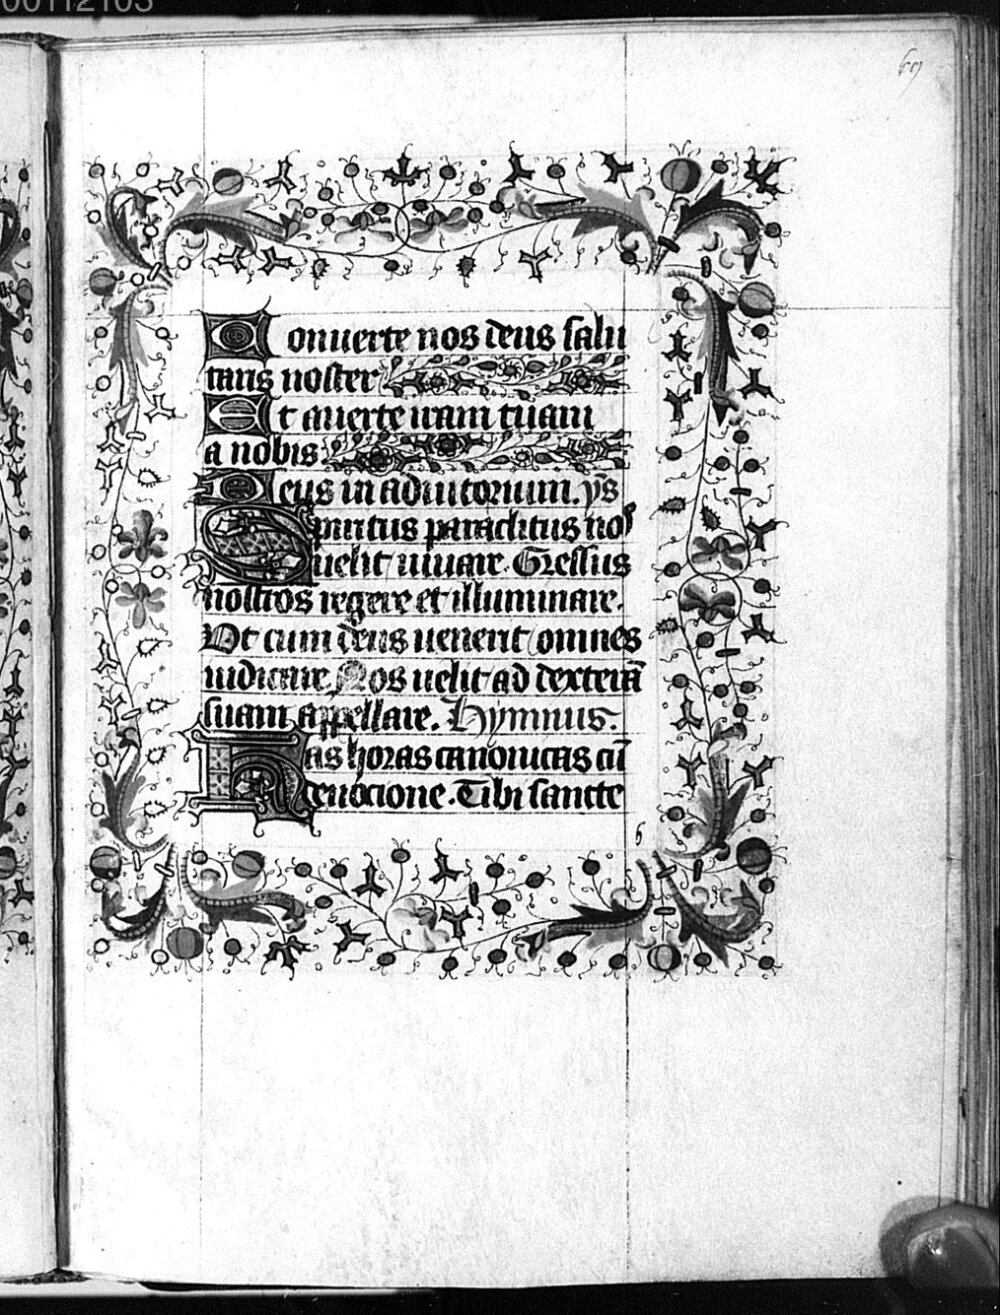 00112103
69
Conuerte nos deus salu
taris noster
Et auerte iram tuam
a nobis
Deus in adiutorium. ps̄
Spiritus paraclitus nos
uelit iuuare. Gressus
nostros regere et illuminare.
Vt cum deus uenerit omnes
iudicare. Nos uelit ad dexterā
suam appellare. Hymnus.
Has horas canonicas cū
deuocione. Tibi sancte